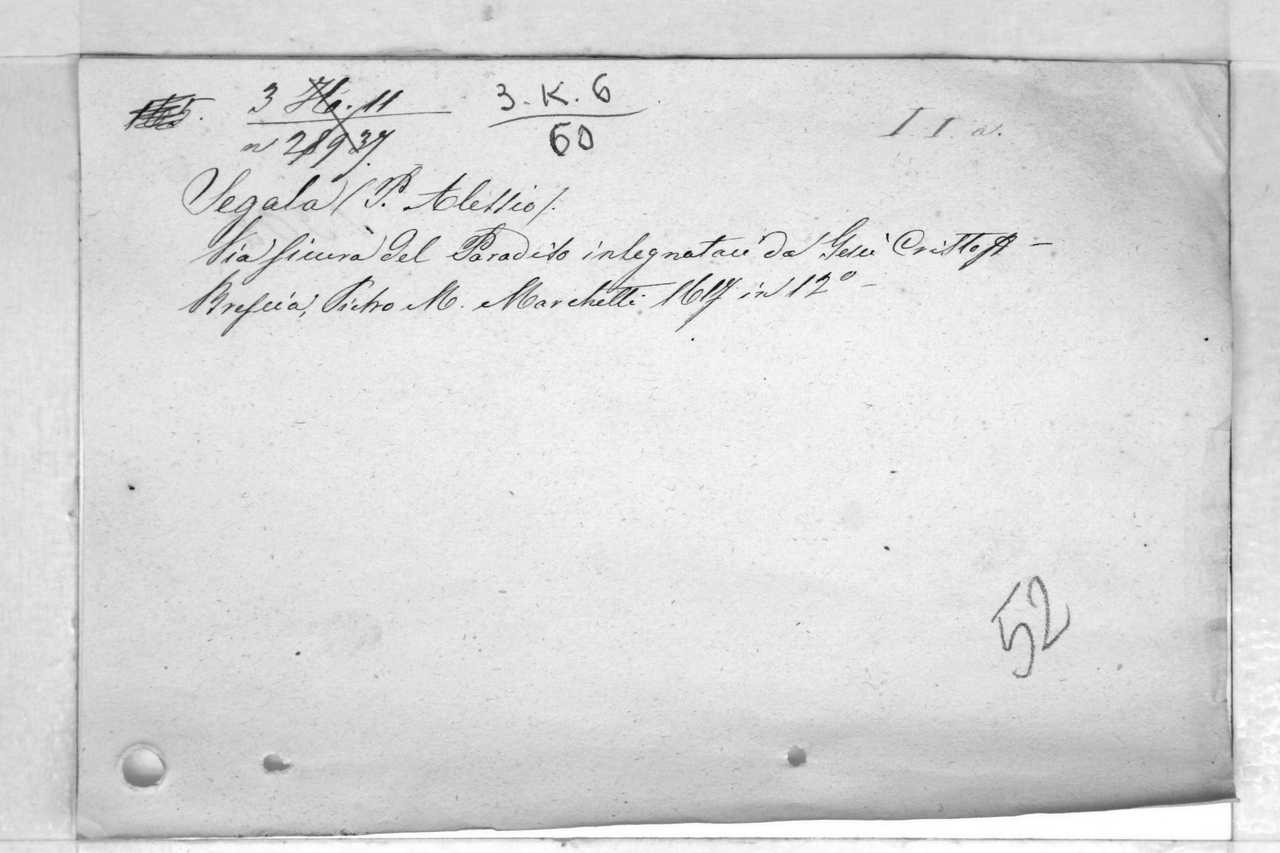 3 Ha. 11 3. K. 6 I. I. a.
n 28937. 60
Segala (P. Alessio).
Via sicura del Paradiso insegnataci da Gesù Cristo —
Brescia, Pietro M. Marchetti 1617 in 12° —
52